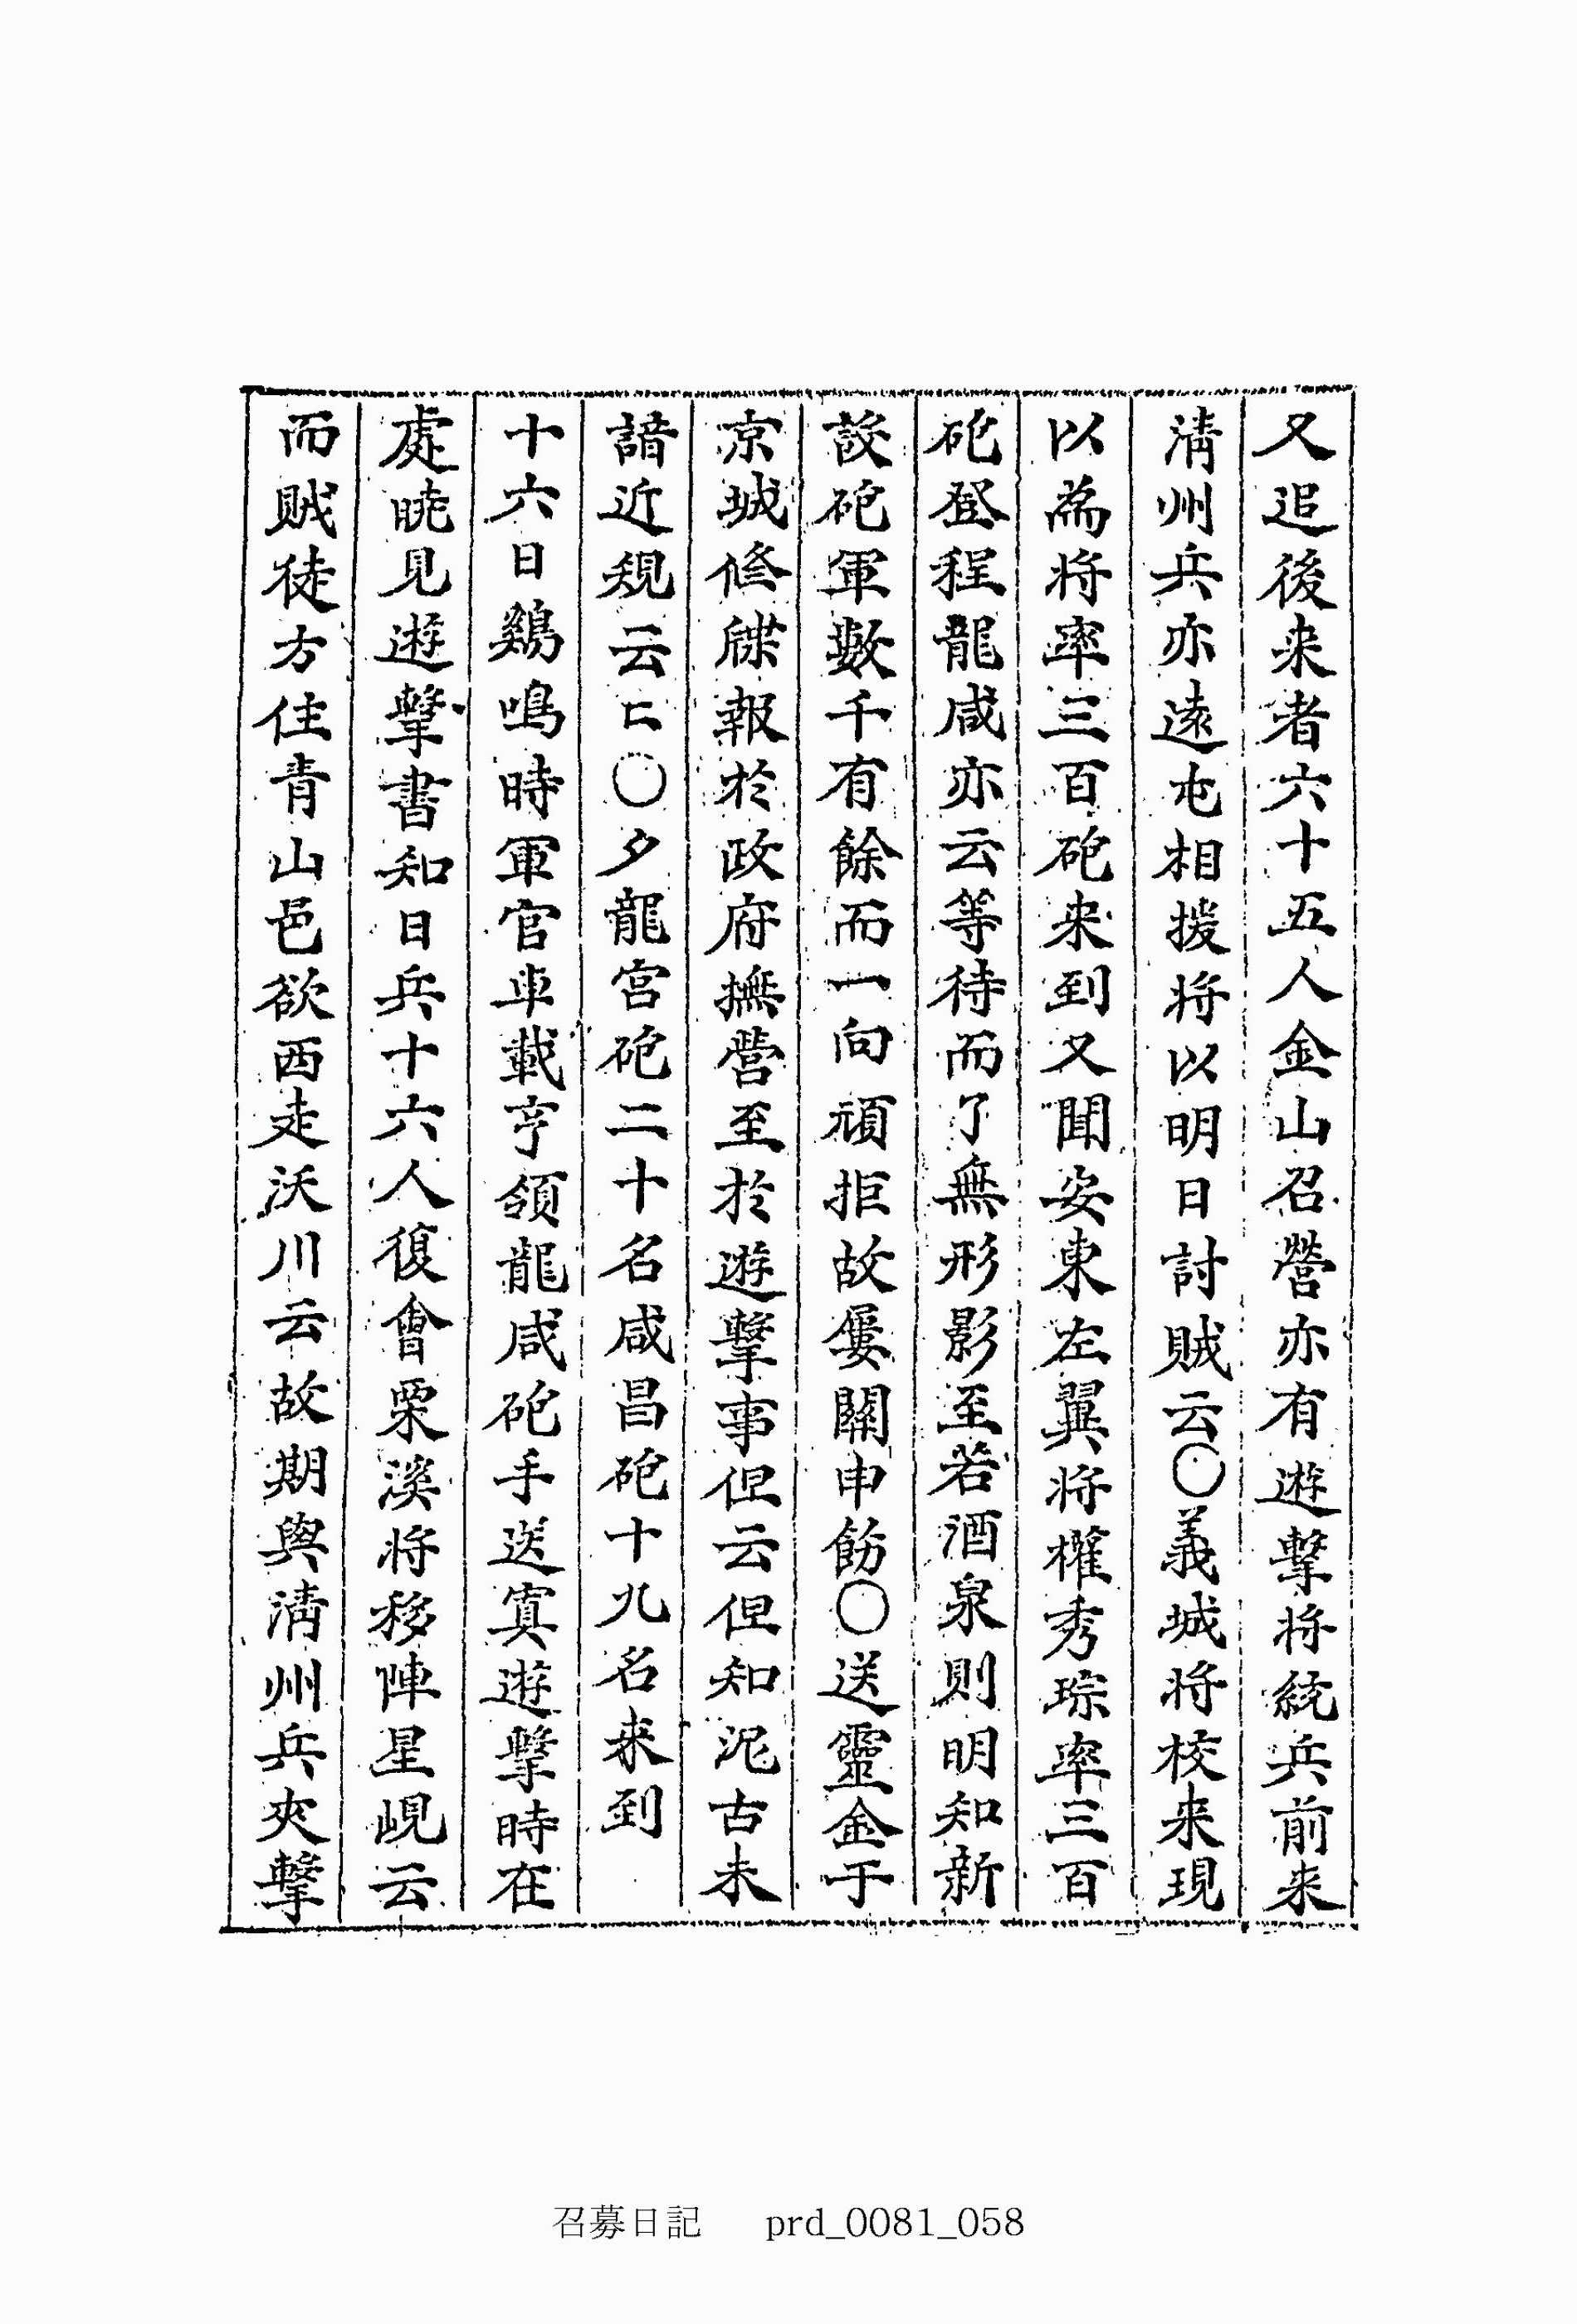 又追後来者六十五人金山召營亦有遊擊將統兵前来
淸州兵亦遠屯相援將以明日討賊云○義城將校来現
以爲將率三百砲来到又聞安東左翼將權秀琮率三百
砲登程龍咸亦云等待而了無形影至若酒泉則明知新
設砲軍數千有餘而一向頑拒故屢關申飭○送靈金于
京城修牒報於政府撫營至於遊擊事但云但知泥古未
諳近規云〻○夕龍宮砲二十名咸昌砲十九名来到
十六日鷄鳴時軍官車載亨領龍咸砲手送寘遊擊時在
處曉見遊擊書知日兵十六人復會栗溪將移陣星峴云
而賊徒方住青山邑欲西走沃川云故期與淸州兵夾擊
召募日記 prd_0081_058